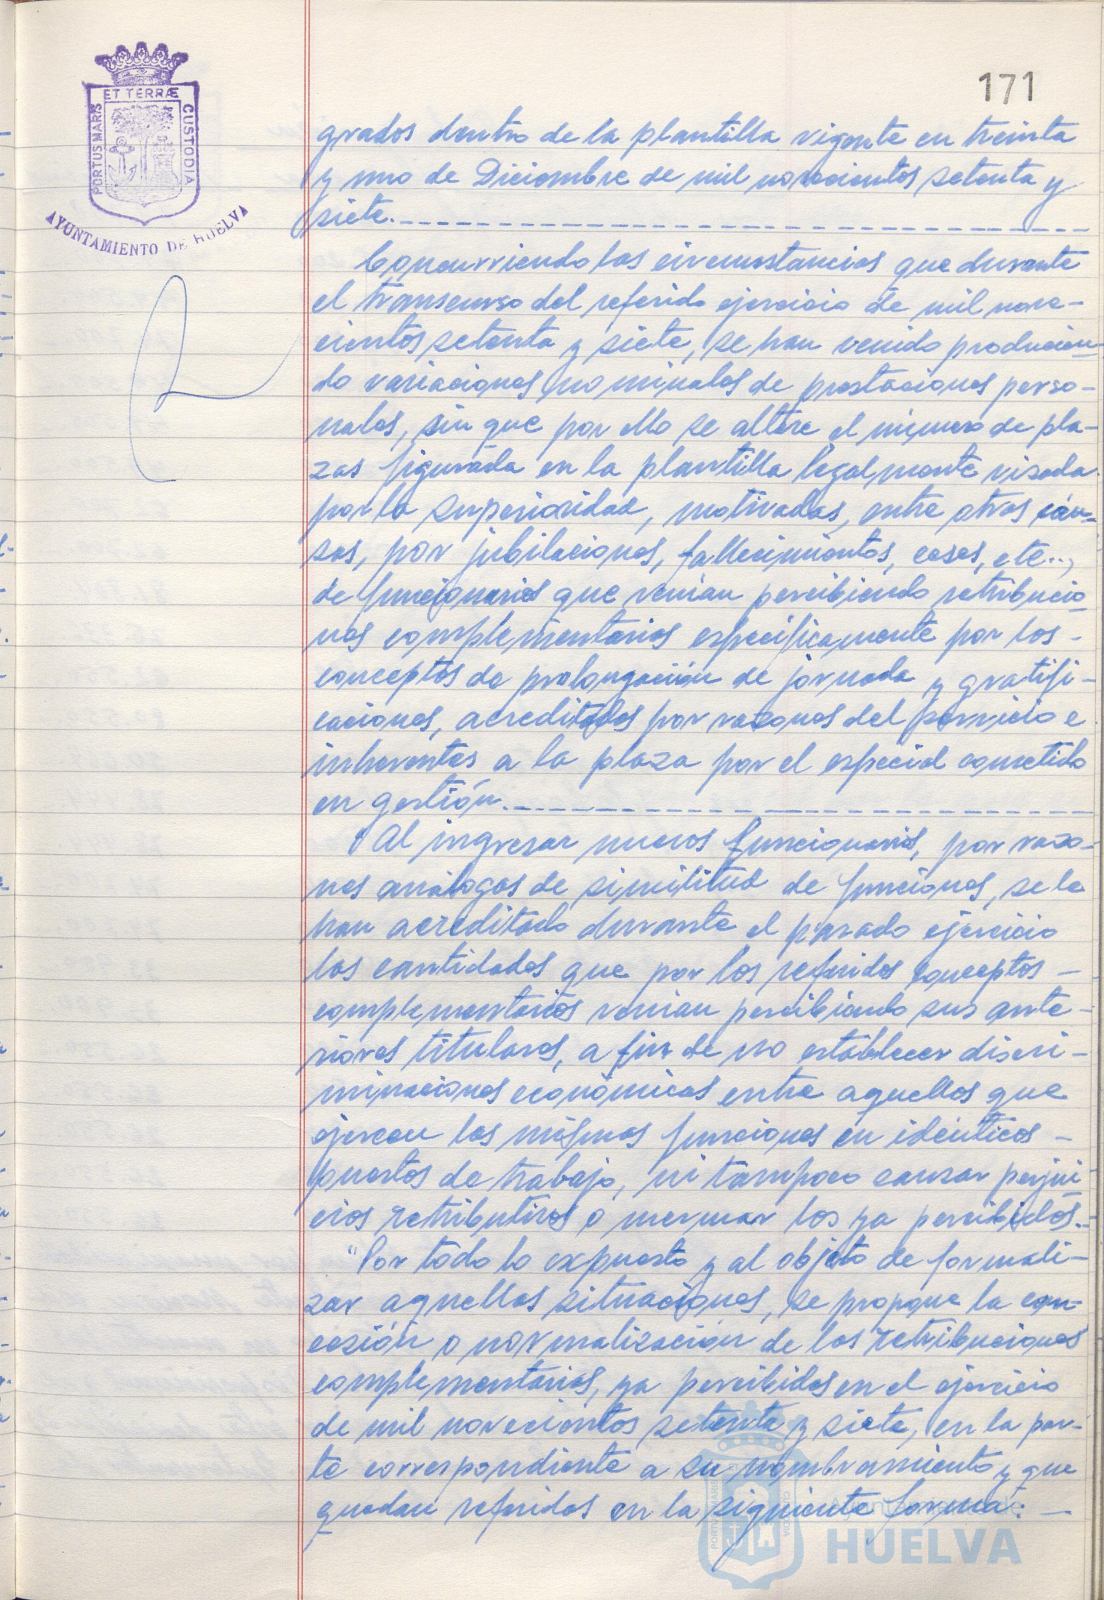 171
ET TERRÆ
PORTUS MARIS
CUSTODIA
AYUNTAMIENTO DE HUELVA
grados dentro de la plantilla vigente en treinta
y uno de Diciembre de mil novecientos setenta y
siete.
Concurriendo las circunstancias que durante
el transcurso del referido ejercicio de mil nove-
cientos setenta y siete, se han venido producien-
do variaciones nominales de prestaciones perso-
nales, sin que por ello se altere el número de pla-
zas figurada en la plantilla legalmente visada
por la superioridad, motivadas, entre otras cau-
sas, por jubilaciones, fallecimientos, ceses, etc..,
de funcionarios que venian percibiendo retribucio-
nes complementarias especificamente por los -
conceptos de prolongación de jornada y gratifi-
caciones, acreditados por razones del servicio e
inherentes a la plaza por el especial cometido
en gestión.
Al ingresar nuevos funcionarios, por razo-
nes análogas de similitud de funciones, se le
han acreditado durante el pasado ejercicio
las cantidades que por los referidos conceptos -
complementarios venian percibiendo sus ante-
riores titulares, a fin de no establecer discri-
minaciones económicas entre aquellos que
ejercen las mismas funciones en idénticos -
puestos de trabajo, ni tampoco causar perjui-
cios retributivos o mermar los ya percibidos.-
"Por todo lo expuesto y al objeto de formali-
zar aquellas situaciones, se propone la con-
cesión o normalización de las retribuciones
complementarias, ya percibidas en el ejercicio
de mil novecientos setenta y siete, en la par-
te correspondiente a su nombramiento y que
quedan referidas en la siguiente forma: -
Ayuntamiento de
HUELVA